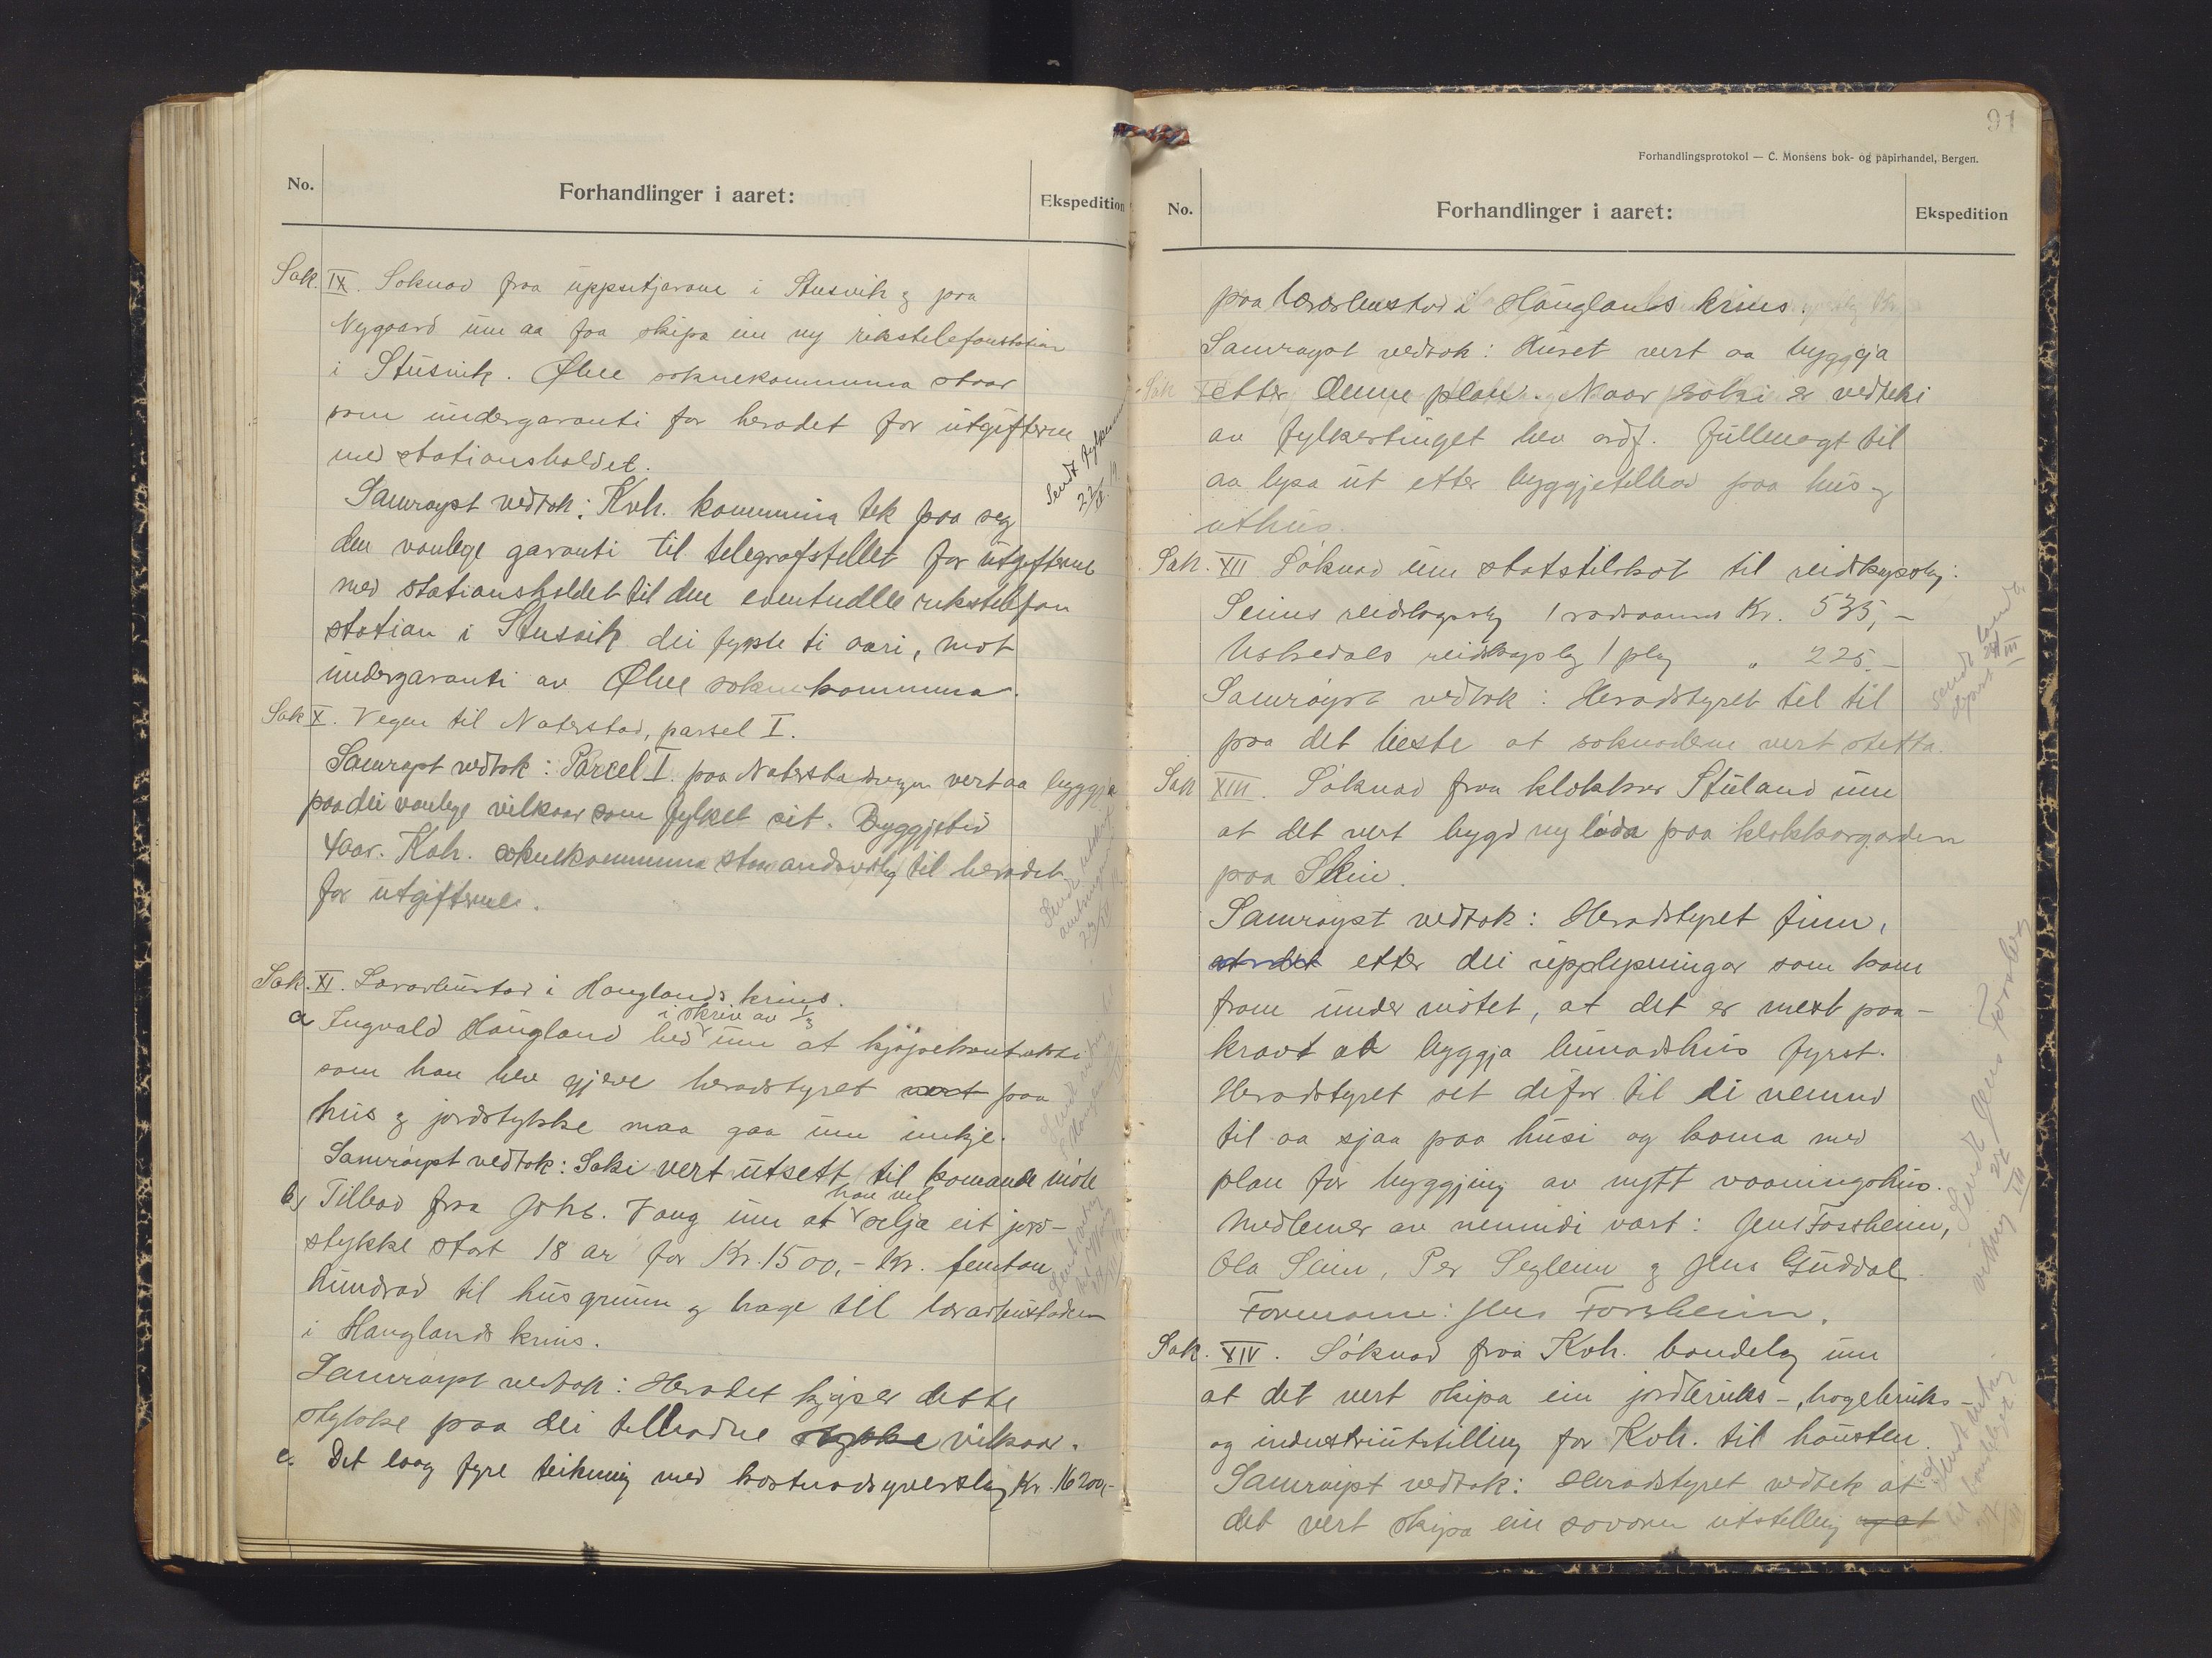 No.
Forhandlinger i aaret:
Ekspedition
Sak. IX. Soknad fraa uppsitjarane i Stusvik og paa
Nygaard um aa faa skipa ein ny rikstelefonstation
i Stusvik. Ølve soknekommuna staar
som undergaranti for heradet for utgifterne
med stationshaldet.
Samrøyst vedtok: Kvh. kommuna tek paa seg
den vanlege garanti til telegrafstellet for utgifterne
med stationshaldet til den eventuelle rikstelefon
station i Stusvik dei fyrste ti aari, mot
undergaranti av Ølve soknekommuna.
Sendt fylkesm
22/II 19
Sak X. Vegen til Naterstad, parsel I.
Samrøyst vedtok: Parcel I. paa Naterstadvegen vert aa byggja
paa dei vanlege vilkaar som fylket set. Byggjetid
4 aar. Kvh. soknekommuna staar andsvarleg til heradet
for utgifterne.
Sak. XI. Lærarbustad i Hauglands krins.
a Ingvald Haugland bed i skriv av 1/3 um at kjøpekontrakti
som han hev gjeve heradstyret vert paa
hus og jordstykke maa gaa um inkje.
Samrøyst vedtok: Saki vert utsett til komande møte
b) Tilbod fraa Johs. Vang um at han vil selja eit jord-
stykke stort 18 ar for Kr. 1500,- Kr. femtan
hundrad til husgrunn og hage til lærarbustaden
i Hauglands krins.
Samrøyst vedtok: Heradet kjøper dette
stykke paa dei tilbodne stykke vilkaar.
c. Det laag fyre teikning med kostnadsyverslag Kr. 16200,-
91
Forhandlingsprotokol — C. Monsens bok- og papirhandel, Bergen.
No.
Forhandlinger i aaret:
Ekspedition
paa lærarbustad i Hauglands krins.
Samrøyst vedtok: Huset vert aa byggja
etter denne plan. Naar saki er vedteki
av fylkestinget hev ordf. fullmagt til
aa lysa ut etter byggjetilbod paa hus og
uthus.
Sak. XII Søknad um statstilskot til reidskapslag:
Seims reidskapslag 1 radsaamar Kr. 535,-
Uskedals reidskapslag 1 plog " 225.-
Samrøyst vedtok: Heradstyret tel til
paa det beste at soknadene vert støtta.
Sak XIII. Søknad fraa klokkar Stuland um
at det vert bygd ny løda paa klokkargarden
paa Skin.
Samrøyst vedtok: Heradstyret finn,
at det etter dei upplysningar som kom
fram under møtet, at det er mest paa-
kravt at byggja bunadshus fyrst.
Heradstyret set difor til ei nemnd
til aa sjaa paa husi og koma med
plan for byggjing av nytt vaaningshus.
Medlemer av nemndi vart: Jens Fossheim,
Ola Seim, Per Seglem og Jens Guddal.
Formann: Jens Forsheim.
Sak. XIV. Søknad fraa Kvh. bondelag um
at det vert skipa ein jordbruks-, hagebruks-
og industriutstilling for Kvh. til hausten.
Samrøyst vedtok: Heradstyret vedtek at
det vert skipa ein sovoren utstelling og at